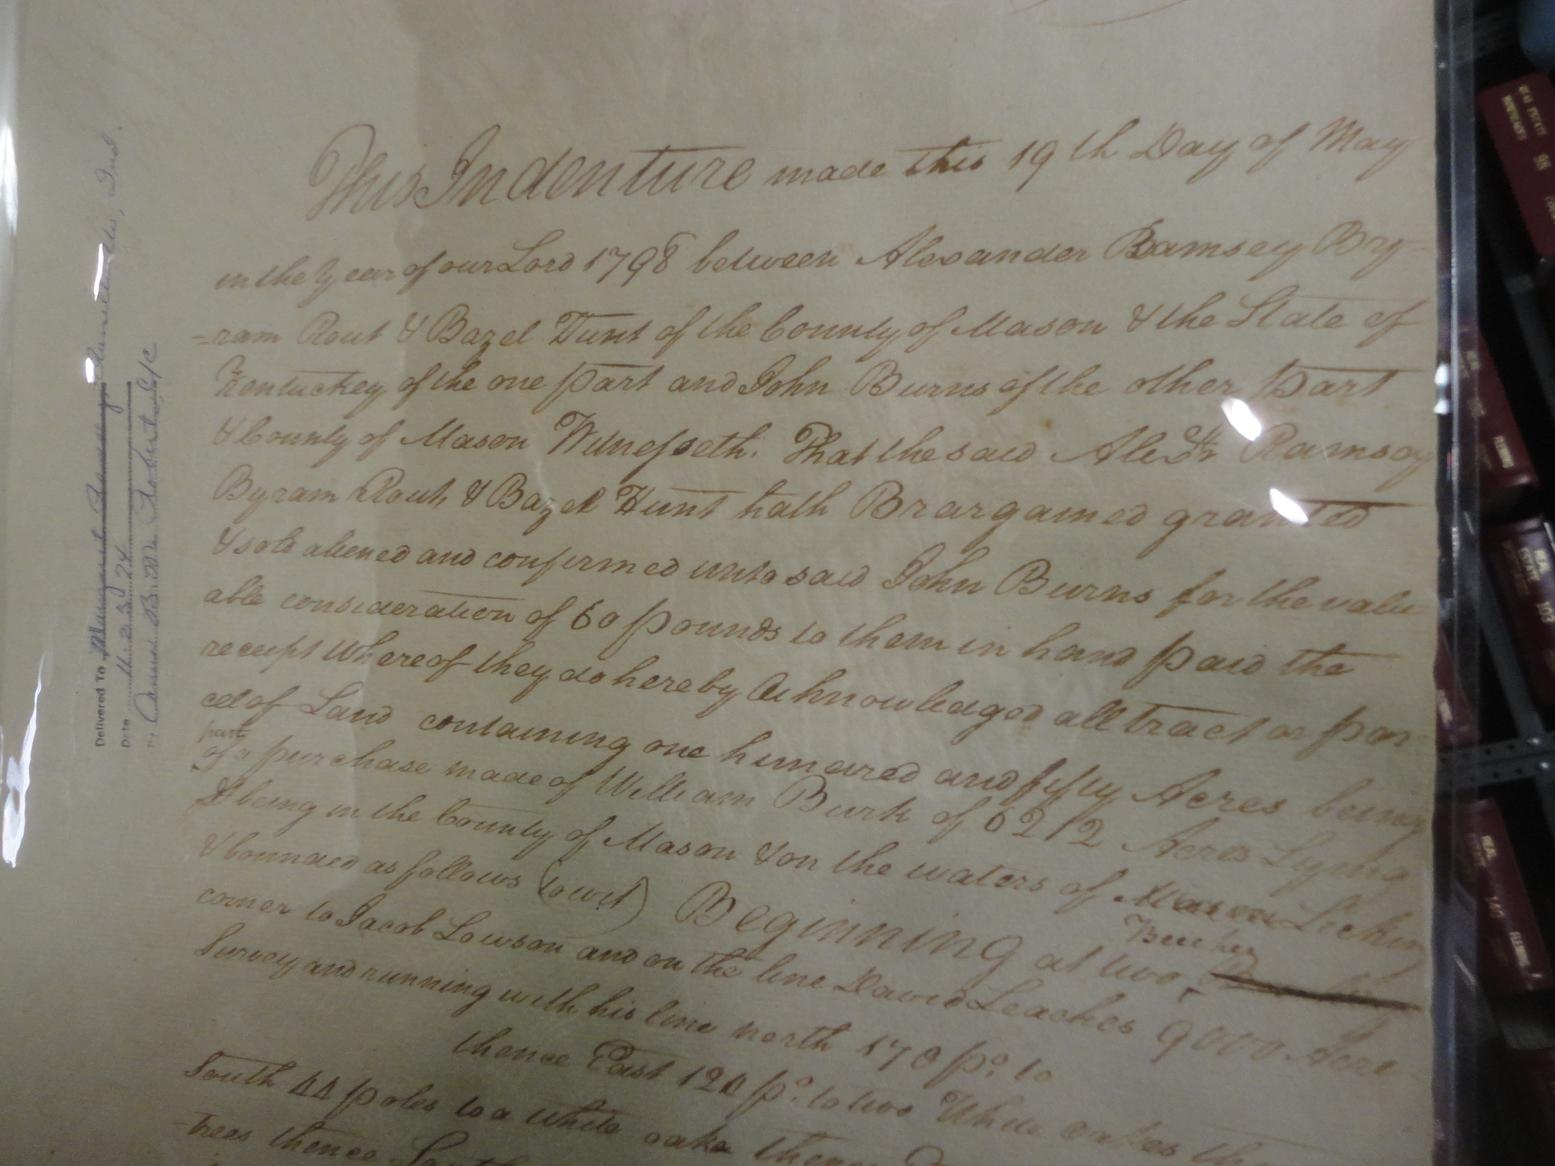 This Indenture made this 19th Day of May
in the Year of our Lord 1798 between Alexander Ramsey By-
=ram Rout & Bazel Hunt of the County of Mason & the State of
Kentuckey of the one part and John Burns of the other part
& County of Mason Witnesseth. That the said Alexdr Ramsey
Byram Rout, & Bazel Hunt hath Brargained granted
& sold aliened and confirmed unto said John Burns for the valu-
able consideration of 60 pounds to them in hand paid the
receipt whereof they do hereby Acknowledged all tract or par-
cel of Land containing one hundred and fifty Acres being
part
of a purchase made of William Burk of 6212 Acres Lying
& being in the County of Mason & on the waters of Licking
& bounded as follows (towit) Beginning at two
Beeches
corner to Jacob Lowson and on the line David Leaches 9000 Acre
Survey and running with his line north 170 po. to
thence East 120 po. to two White oakes
South 44 poles to a white oake thence
-trees thence South
Delivered To Margaret
Date 11.23.24
REAL ESTATE
MORTGAGES
FLEMING
103
145 FLEMING